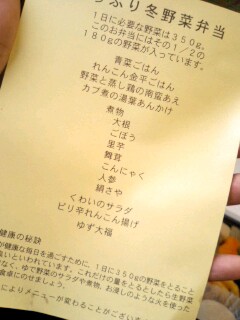 っぷり冬野菜弁当
1日に必要な野菜は350g。
このお弁当にはその1/2の
180gの野菜が入っています。
青菜ごはん
れんこん金平ごはん
野菜と蒸し鶏の南蛮あえ
カブ煮の湯葉あんかけ
煮物
大根
ごぼう
里芋
舞茸
こんにゃく
人参
絹さや
くわいのサラダ
ピリ辛れんこん揚げ
ゆず大福
健康の秘訣
が健康な毎日を過ごすために、1日に350gの野菜をとること
良いといわれています。これだけの量をとるとしたら生野菜
なく、ゆで野菜のサラダや煮物、お浸しのような火を使った
食卓にのせましょう。
によりメニューが変わることがござい